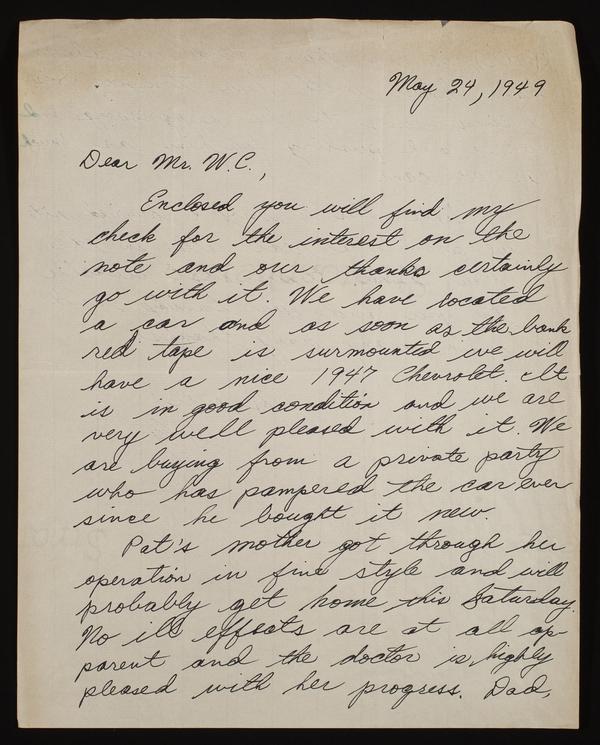 May 24, 1949
Dear Mr. W.C.,
Enclosed you will find my
check for the interest on the
note and our thanks certainly
go with it. We have located
a car and as soon as the bank
red tape is surmounted we will
have a nice 1947 Chevrolet. It
is in good condition and we are
very well pleased with it. We
are buying from a private party
who has pampered the car ever
since he bought it new.
Pat's mother got through her
operation in fine style and will
probably get home this Saturday.
No ill effects are at all ap-
parent and the doctor is highly
pleased with her progress. Dad,